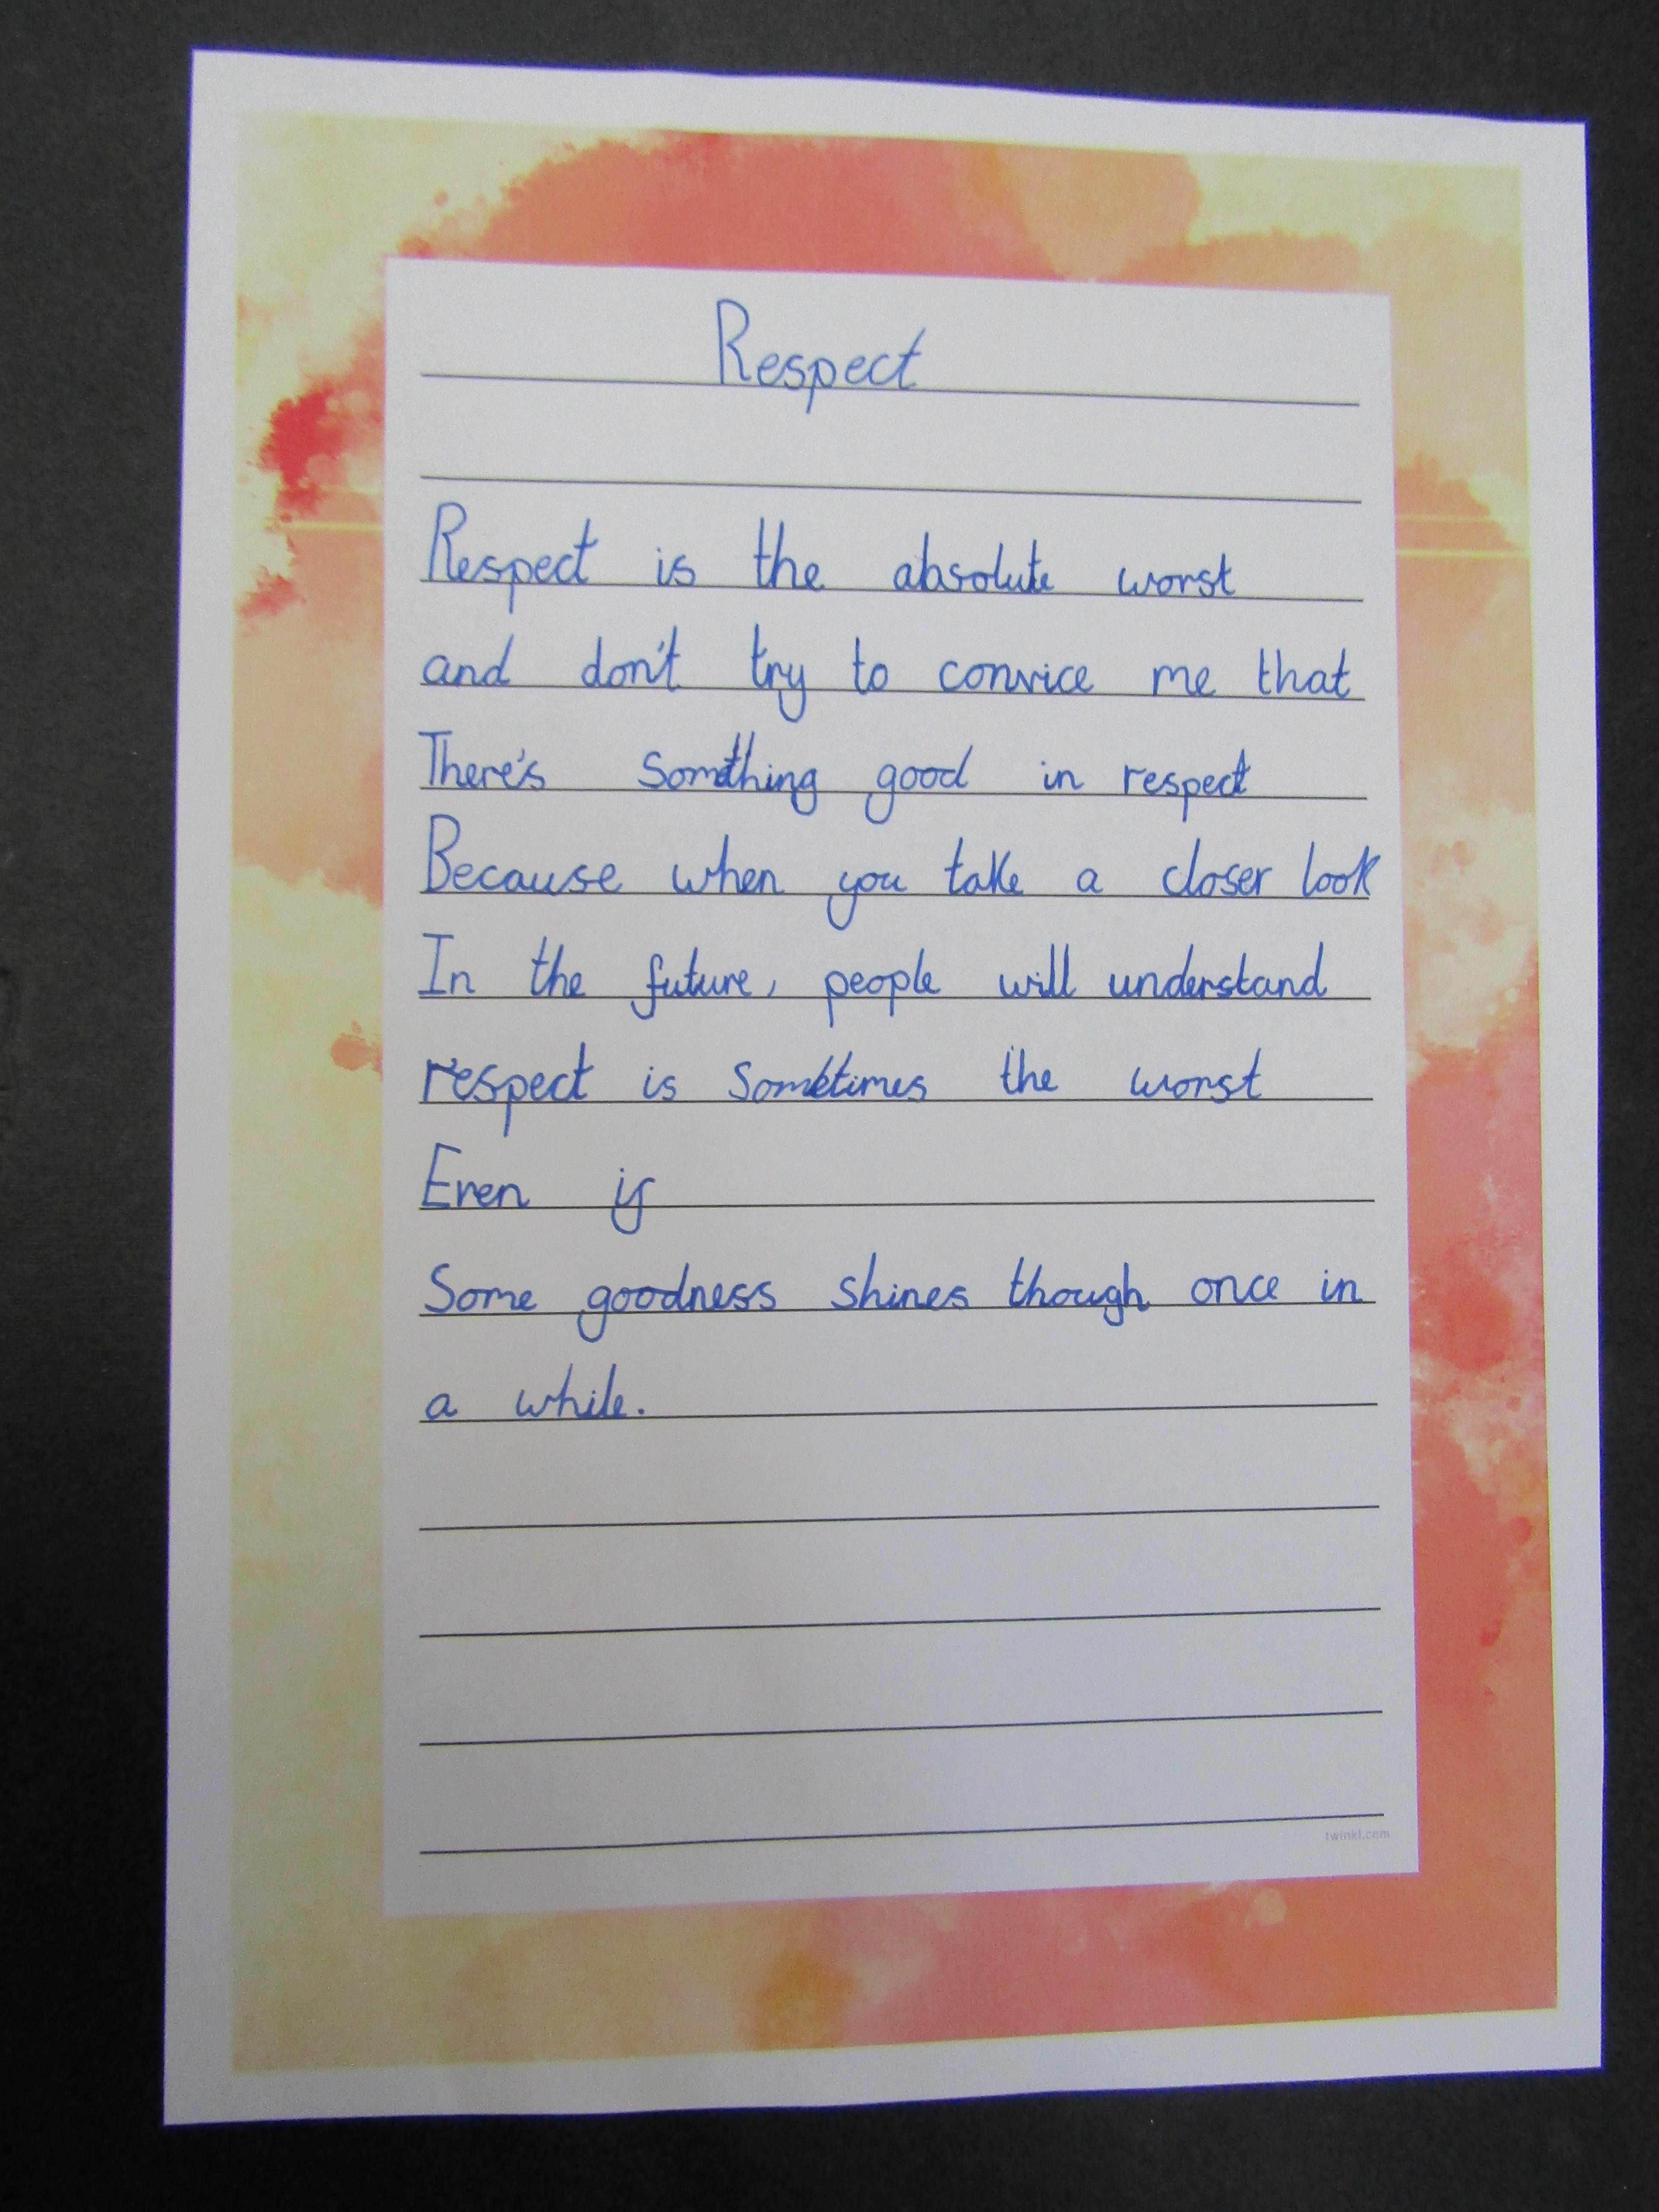 Respect
Respect is the absolute worst
and don't try to convice me that
There's Something good in respect
Because when you take a closer look
In the future, people will understand
respect is Sometimes the worst
Even if
Some goodness shines though once in
a while.
twinkl.com